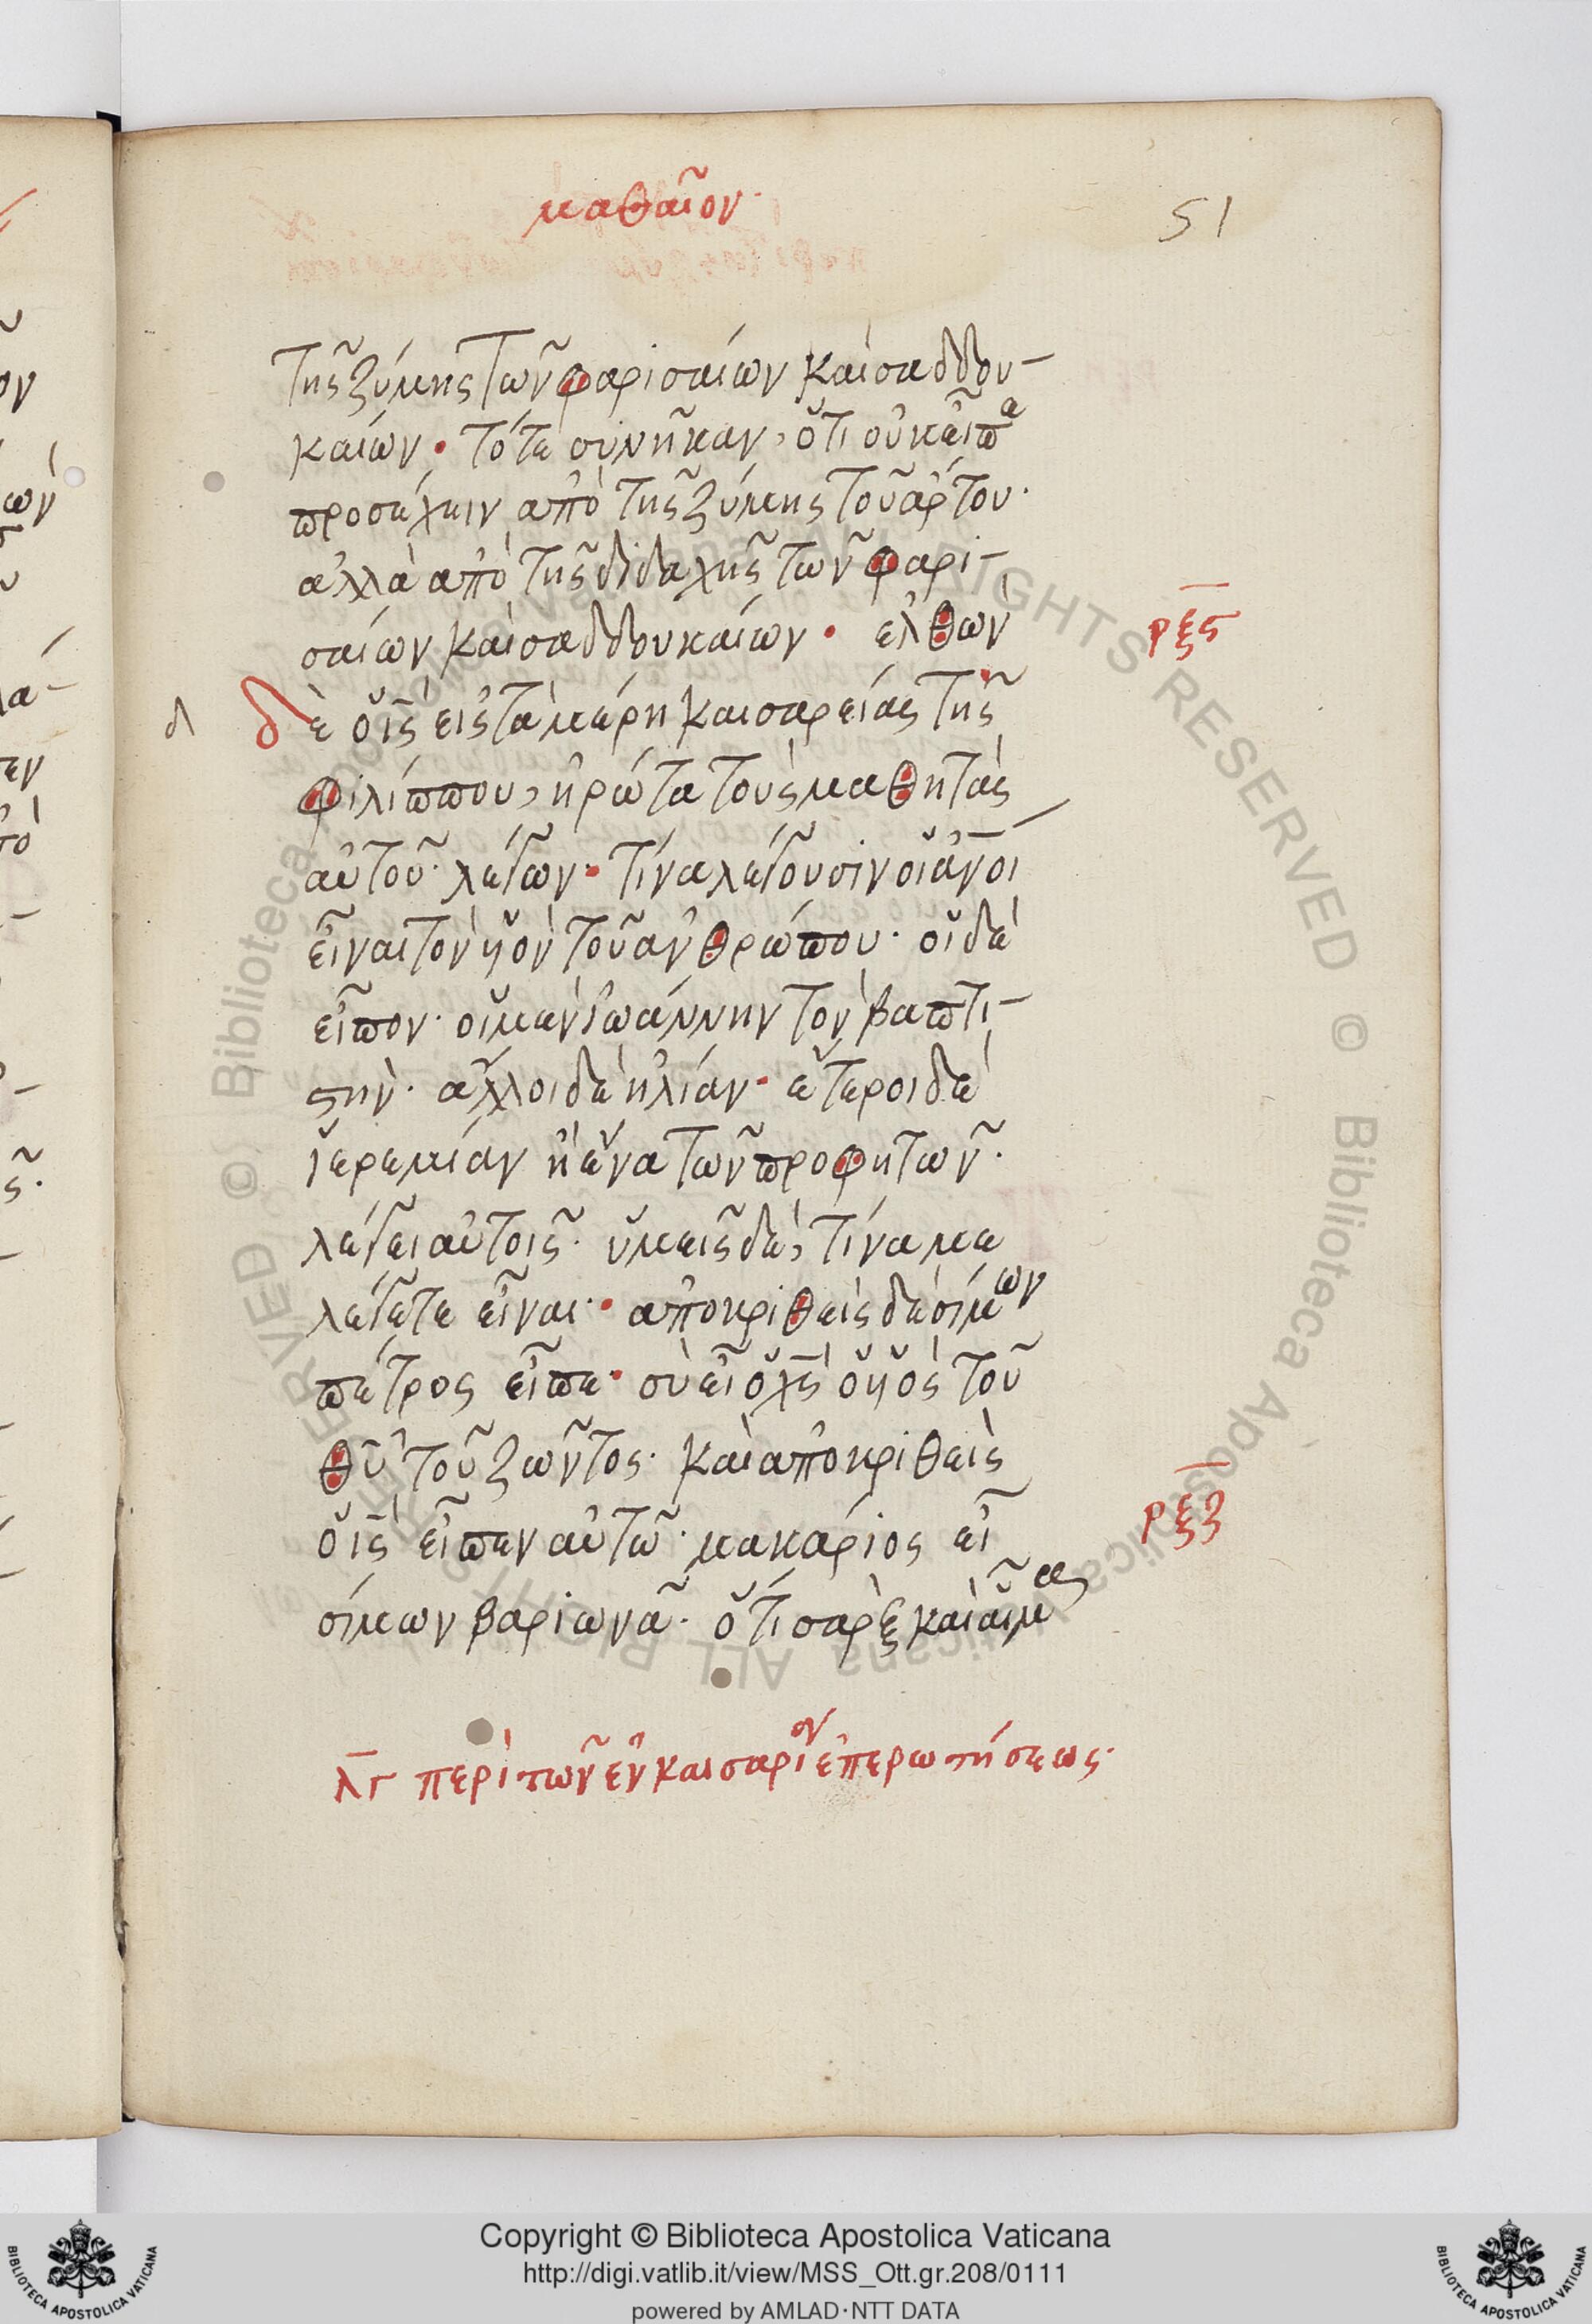 μαθαῖον·
51
τῆς ζύμης τῶν φαρισαίων καὶ σαδδου-
καίων· τότε συνῆκαν, ὅτι οὐκ εἶπ
προσέχειν ἀπὸ τῆς ζύμης τοῦ ἄρτου·
ἀλλὰ ἀπὸ τῆς διδαχῆς τῶν φαρι-
σαίων καὶ σαδδουκαίων· ἐλθὼν
ρξς
δ
δὲ ὁ ις εἰς τὰ μέρη καισαρείας τῆς
φιλίππου, ἠρώτα τοὺς μαθητὰς
αὐτοῦ· λέγων· τίνα λέγουσιν οἱ ἄνοι
εἶναι τὸν υἱὸν τοῦ ἀνθρώπου· οἱ δὲ
εἶπον· οἱ μὲν ἰωάννην τὸν βαπτι-
ςήν· ἄλλοι δὲ ἠλίαν· ἕτεροι δὲ
ἱερεμίαν ἢ ἕνα τῶν προφητῶν·
λέγει αὐτοῖς· ὑμεῖς δὲ, τίνα με
λέγετε εἶναι· ἀποκριθεὶς δὲ σίμων
πέτρος εἶπε· σὺ εἶ ὁ χς ὁ υἱὸς τοῦ
θυ τοῦ ζῶντος· καὶ ἀποκριθεὶς
ὁ ις εἶπεν αὐτῶ· μακάριος εἶ
ρξζ
σίμων βαριωνᾶ· ὅτι σὰρξ καὶ αἷμα
λγ περὶ τῶν ἐν καισαρί ἐπερωτήσεως·
Copyright © Biblioteca Apostolica Vaticana
http://digi.vatlib.it/view/MSS_Ott.gr.208/0111
powered by AMLAD·NTT DATA